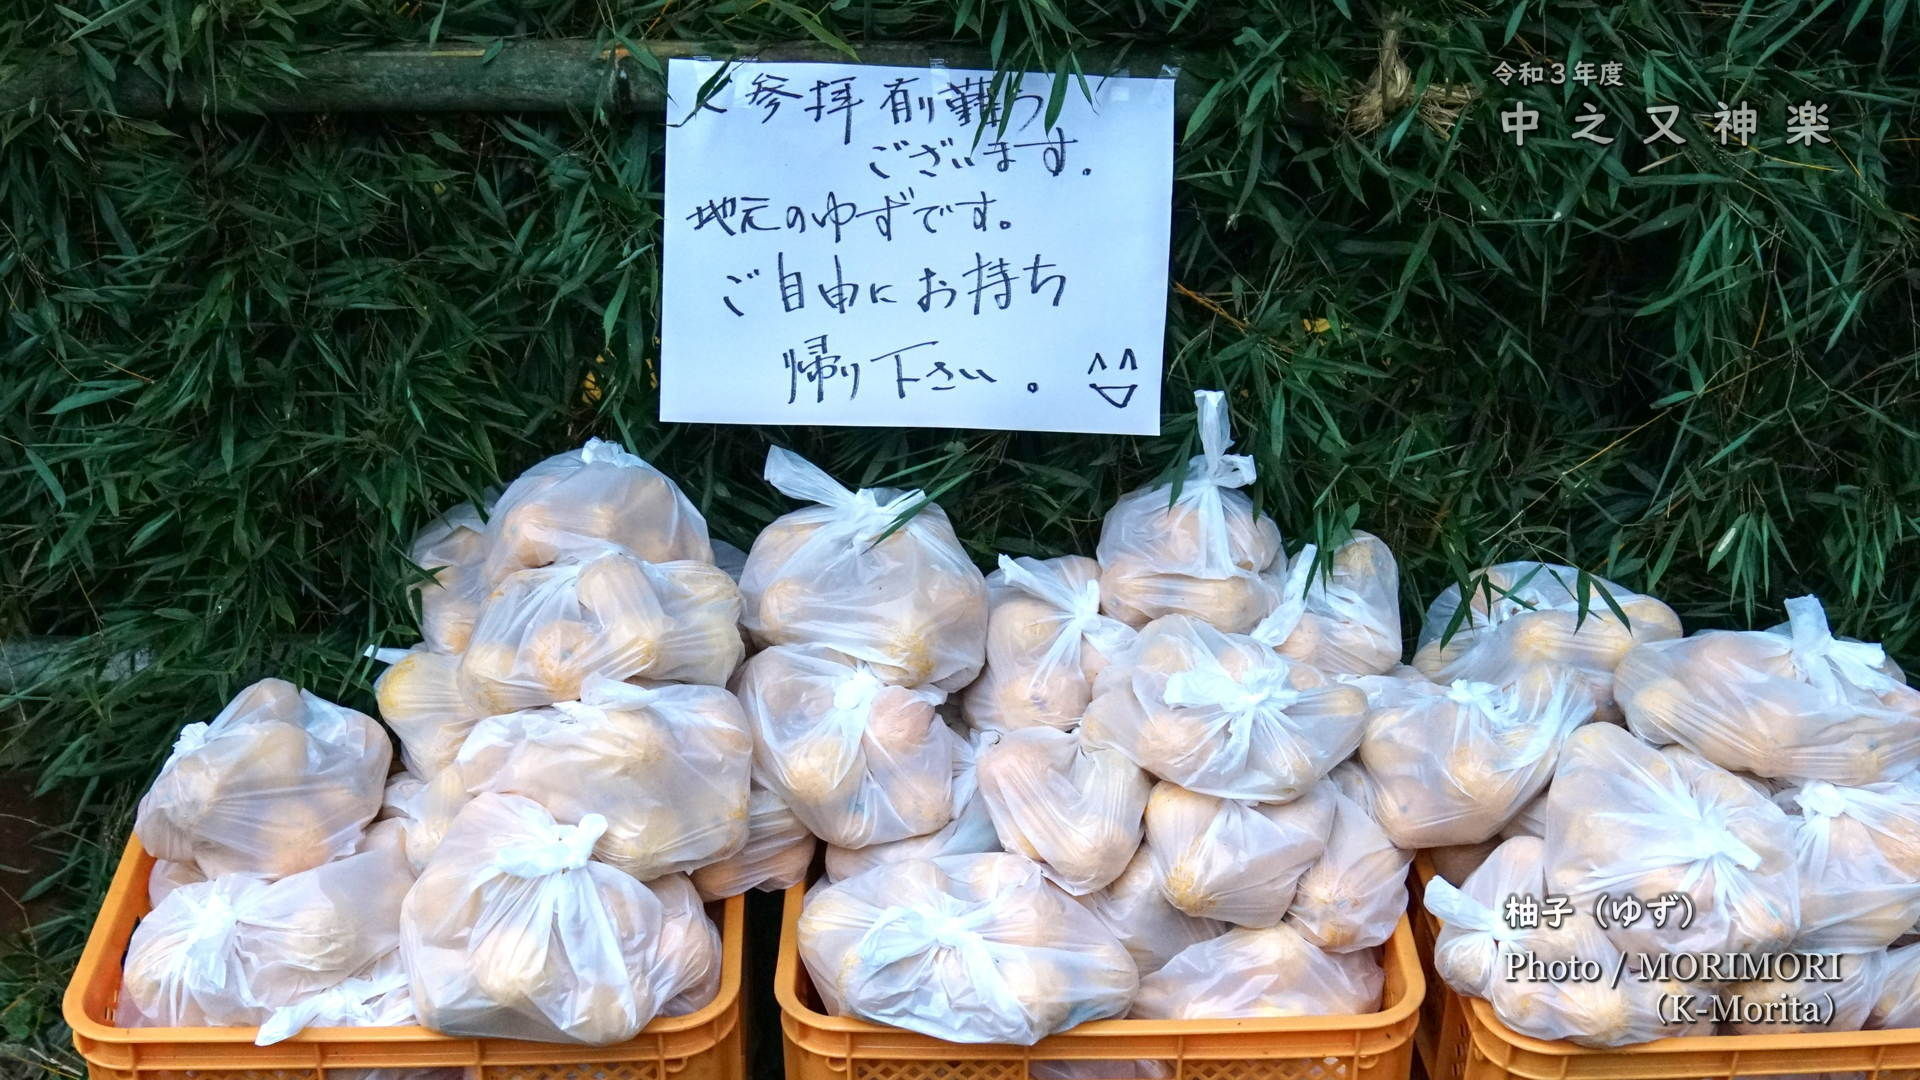 ご参拝有難う
ございます。
地元のゆずです。
ご自由にお持ち
帰り下さい。
令和3年度
中之又神楽
柚子（ゆず）
Photo / MORIMORI
（K-Morita）